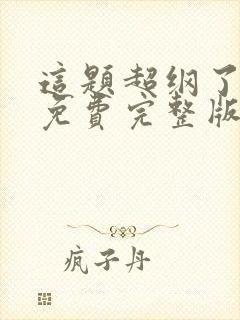 這題超纲了
免費完整版
疯子丹